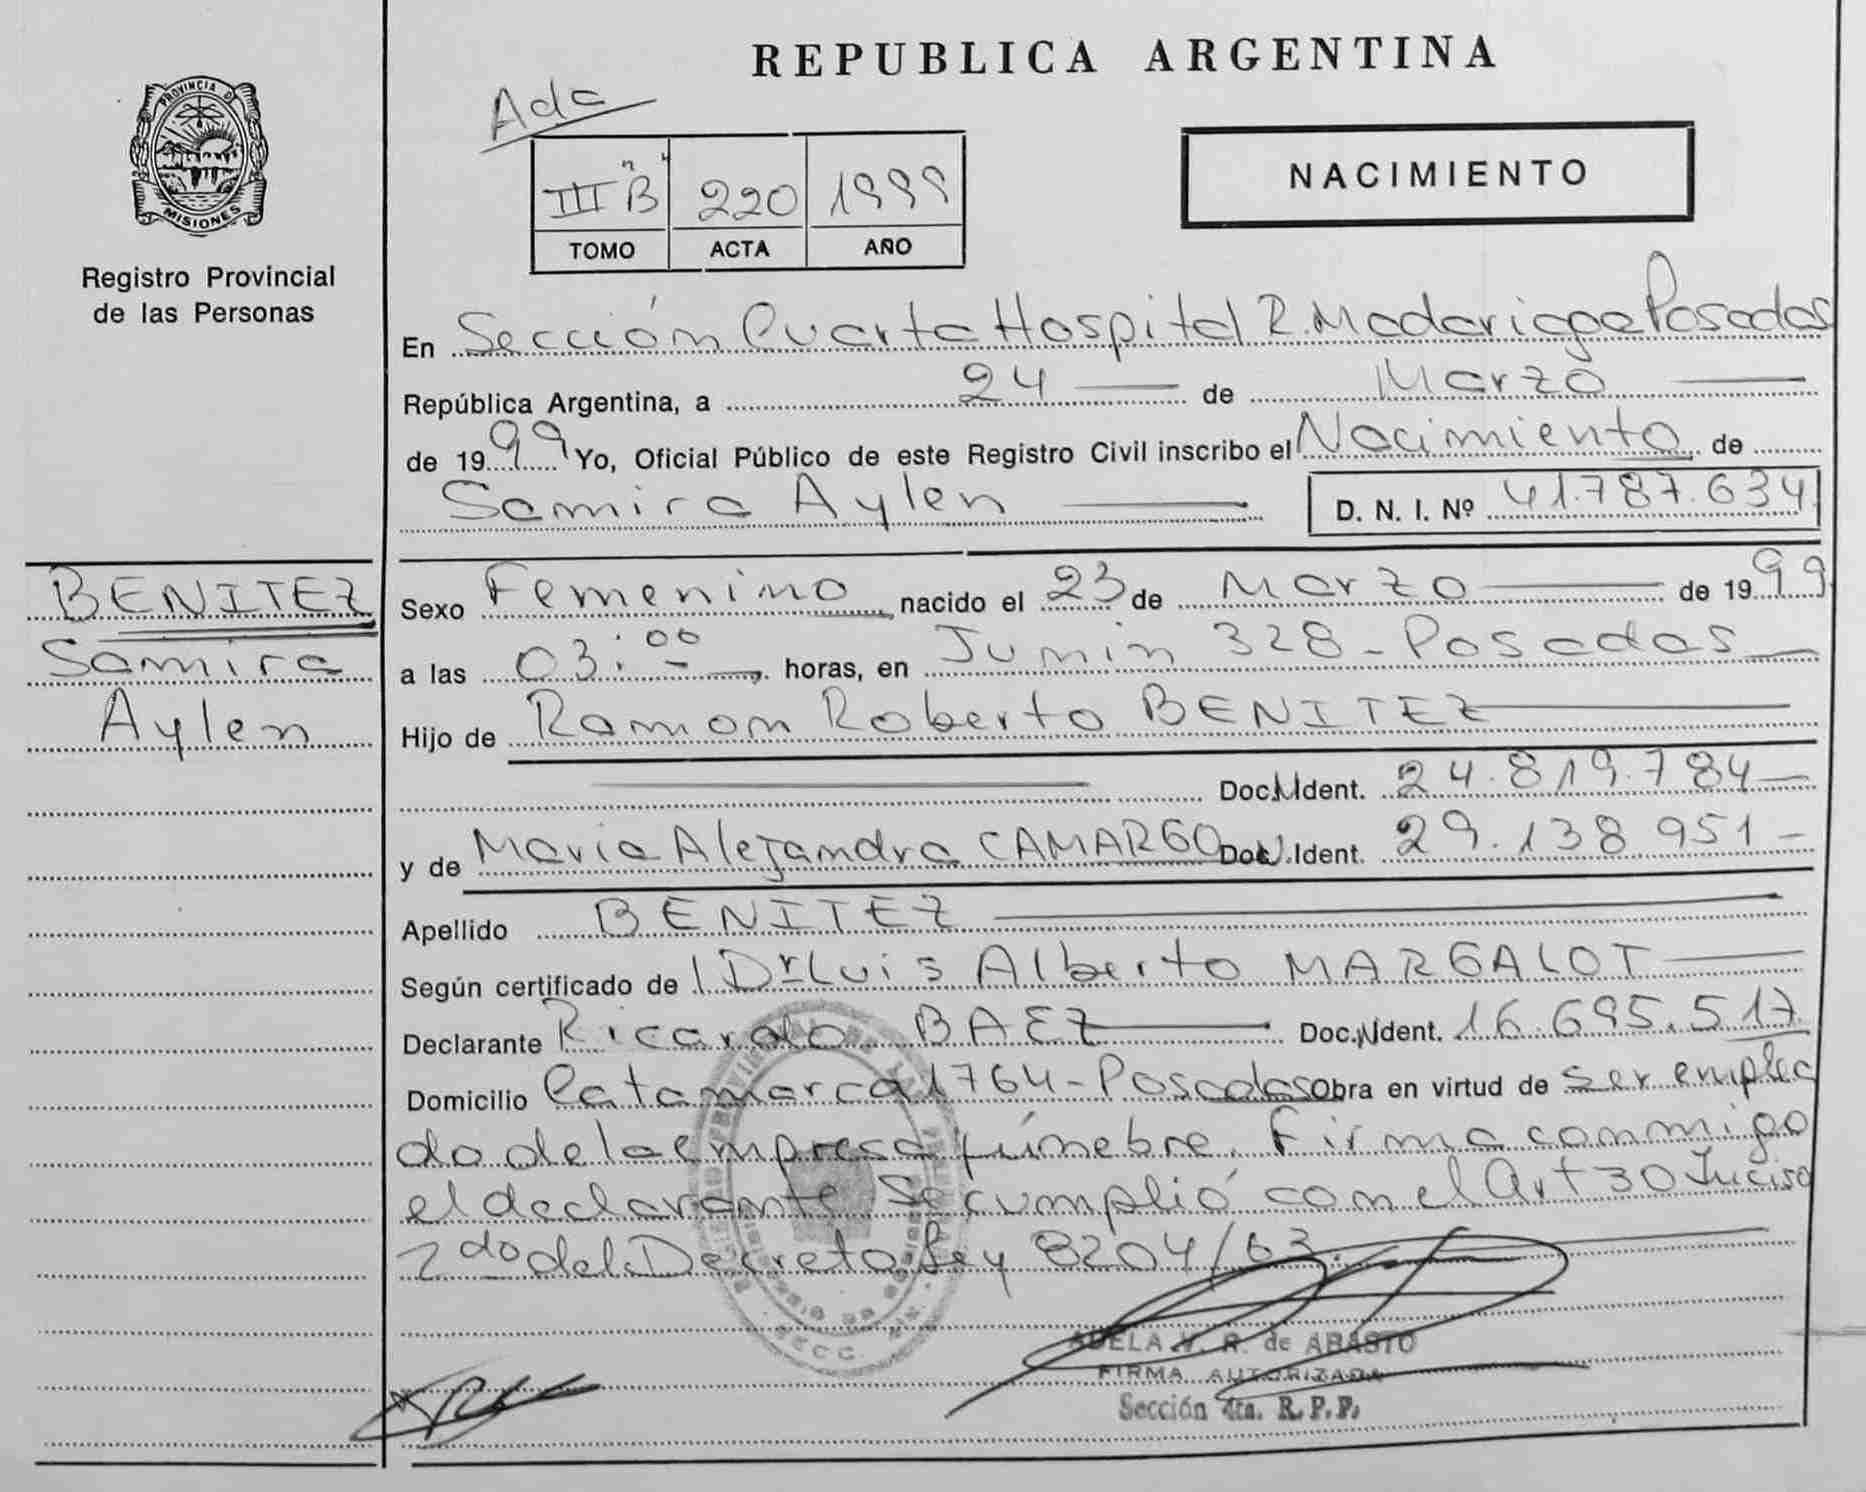 REPUBLICA ARGENTINA
PROVINCIA DE
MISIONES
Registro Provincial
de las Personas
Ada
III "B" 220 1999
TOMO ACTA AÑO
NACIMIENTO
En Sección Cuarta Hospital R. Madariaga Posadas
República Argentina, a 24 de Marzo
de 1999 Yo, Oficial Público de este Registro Civil inscribo el Nacimiento de
Samira Aylen D. N. I. Nº 41.787.634
BENITEZ
Samira
Aylen
Sexo Femenino nacido el 23 de Marzo de 1999
a las 03:00 horas, en Junin 328 - Posadas
Hijo de Ramon Roberto BENITEZ
Doc.N.Ident. 24.819.784
y de Maria Alejandra CAMARGO Doc.N.Ident. 29.138.951
Apellido BENITEZ
Según certificado de l Dr Luis Alberto MARGALOT
Declarante Ricardo BAEZ Doc.N.Ident. 16.695.517
Domicilio Catamarca 1764 - Posadas Obra en virtud de ser emplea
do de la empresa fúnebre. Firma conmigo
el declarante Se cumplió con el Art 30 Inciso
2do del Decreto Ley 8204/63.
ADELA V. R. de ABASTO
FIRMA AUTORIZADA
Sección 4ta. R. P. P.